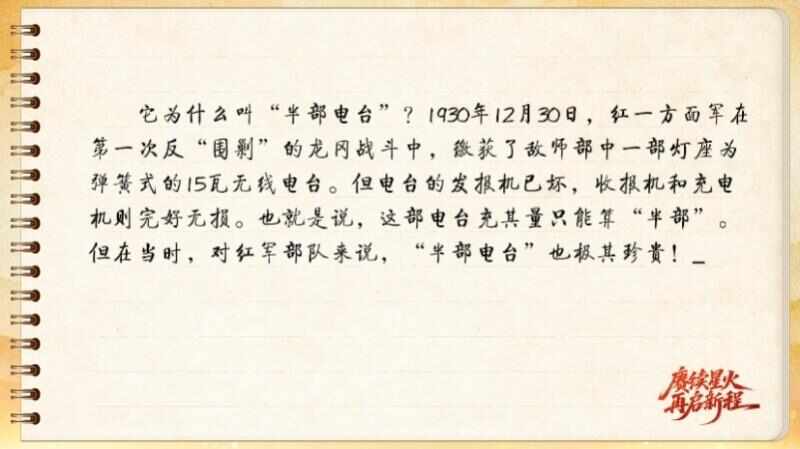 它为什么叫“半部电台”？1930年12月30日，红一方面军在
第一次反“围剿”的龙冈战斗中，缴获了敌师部中一部灯座为
弹簧式的15瓦无线电台。但电台的发报机已坏，收报机和充电
机则完好无损。也就是说，这部电台充其量只能算“半部”。
但在当时，对红军部队来说，“半部电台”也极其珍贵！_
赓续星火
再启新程